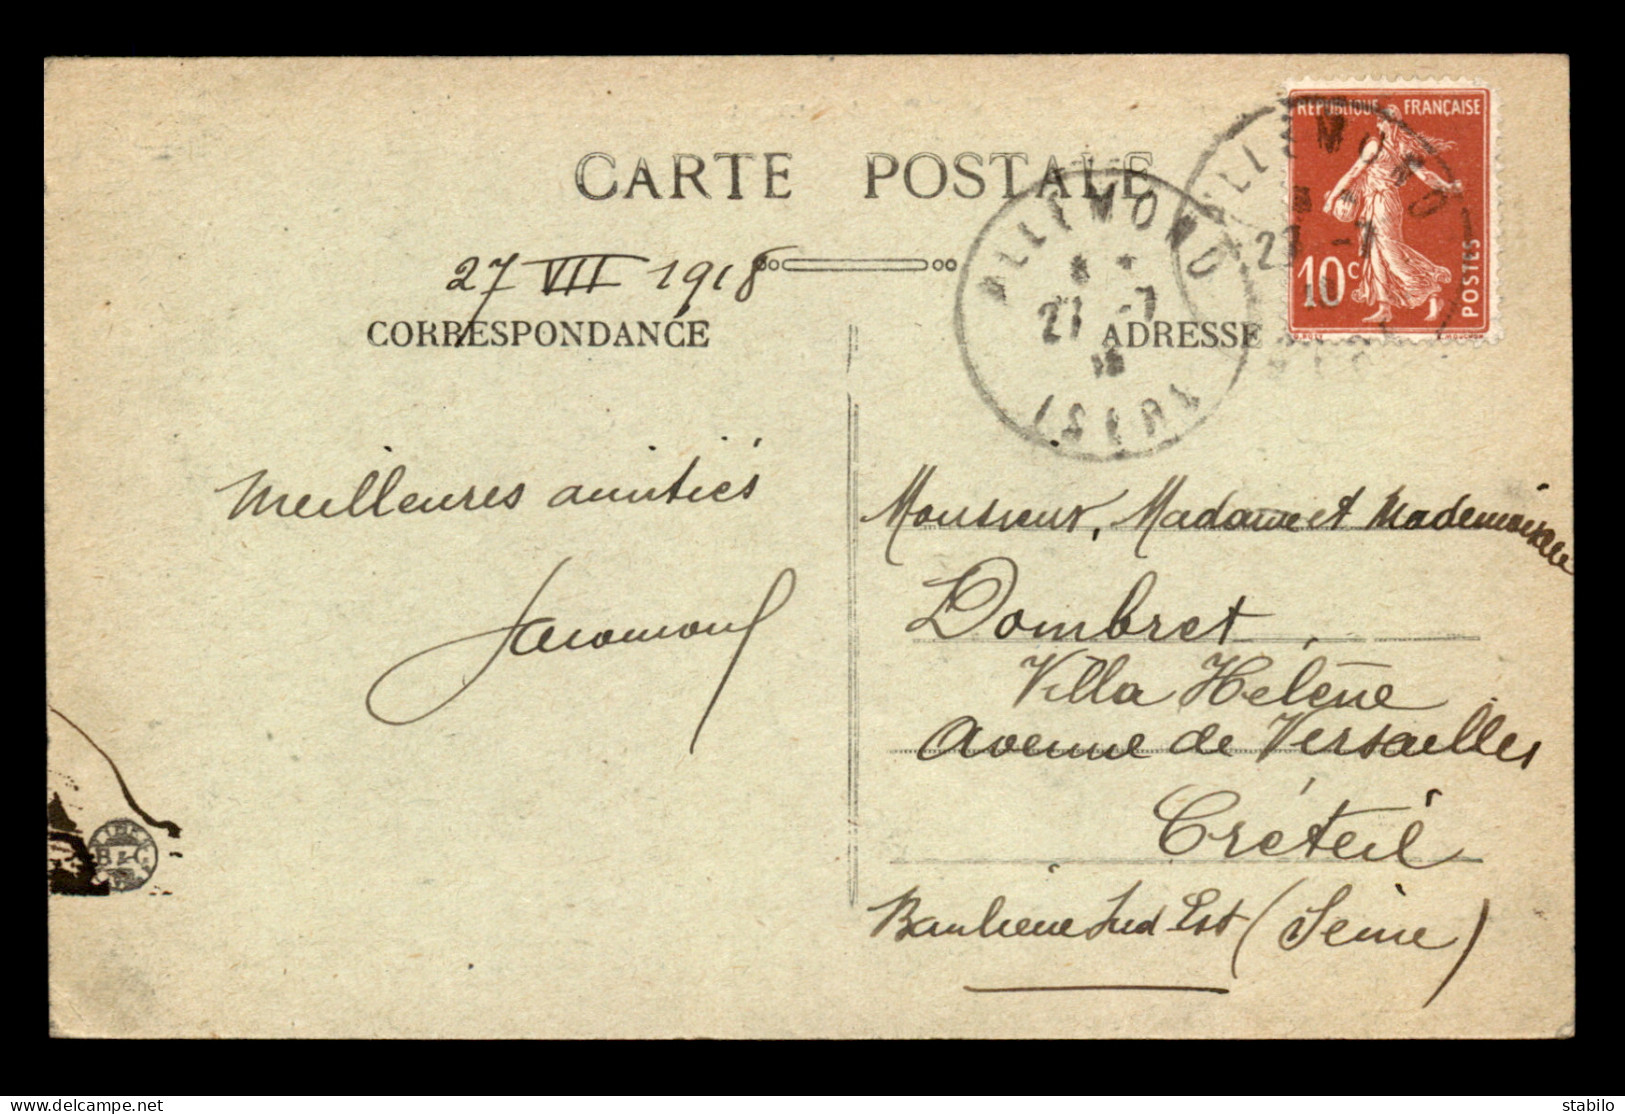 RÉPUBLIQUE FRANÇAISE
10c
POSTES
CARTE POSTALE
ALLEMOND
27 -7
18
ISERE
ALLEMOND
27 -7
18
27 VII 1918
CORRESPONDANCE
ADRESSE
Meilleures amitiés
Monsieur, Madame et Mademoiselle
Dombret
Villa Hélène
Avenue de Versailles
Créteil
Banlieue Sud Est (Seine)
delcampe.net
stabilo